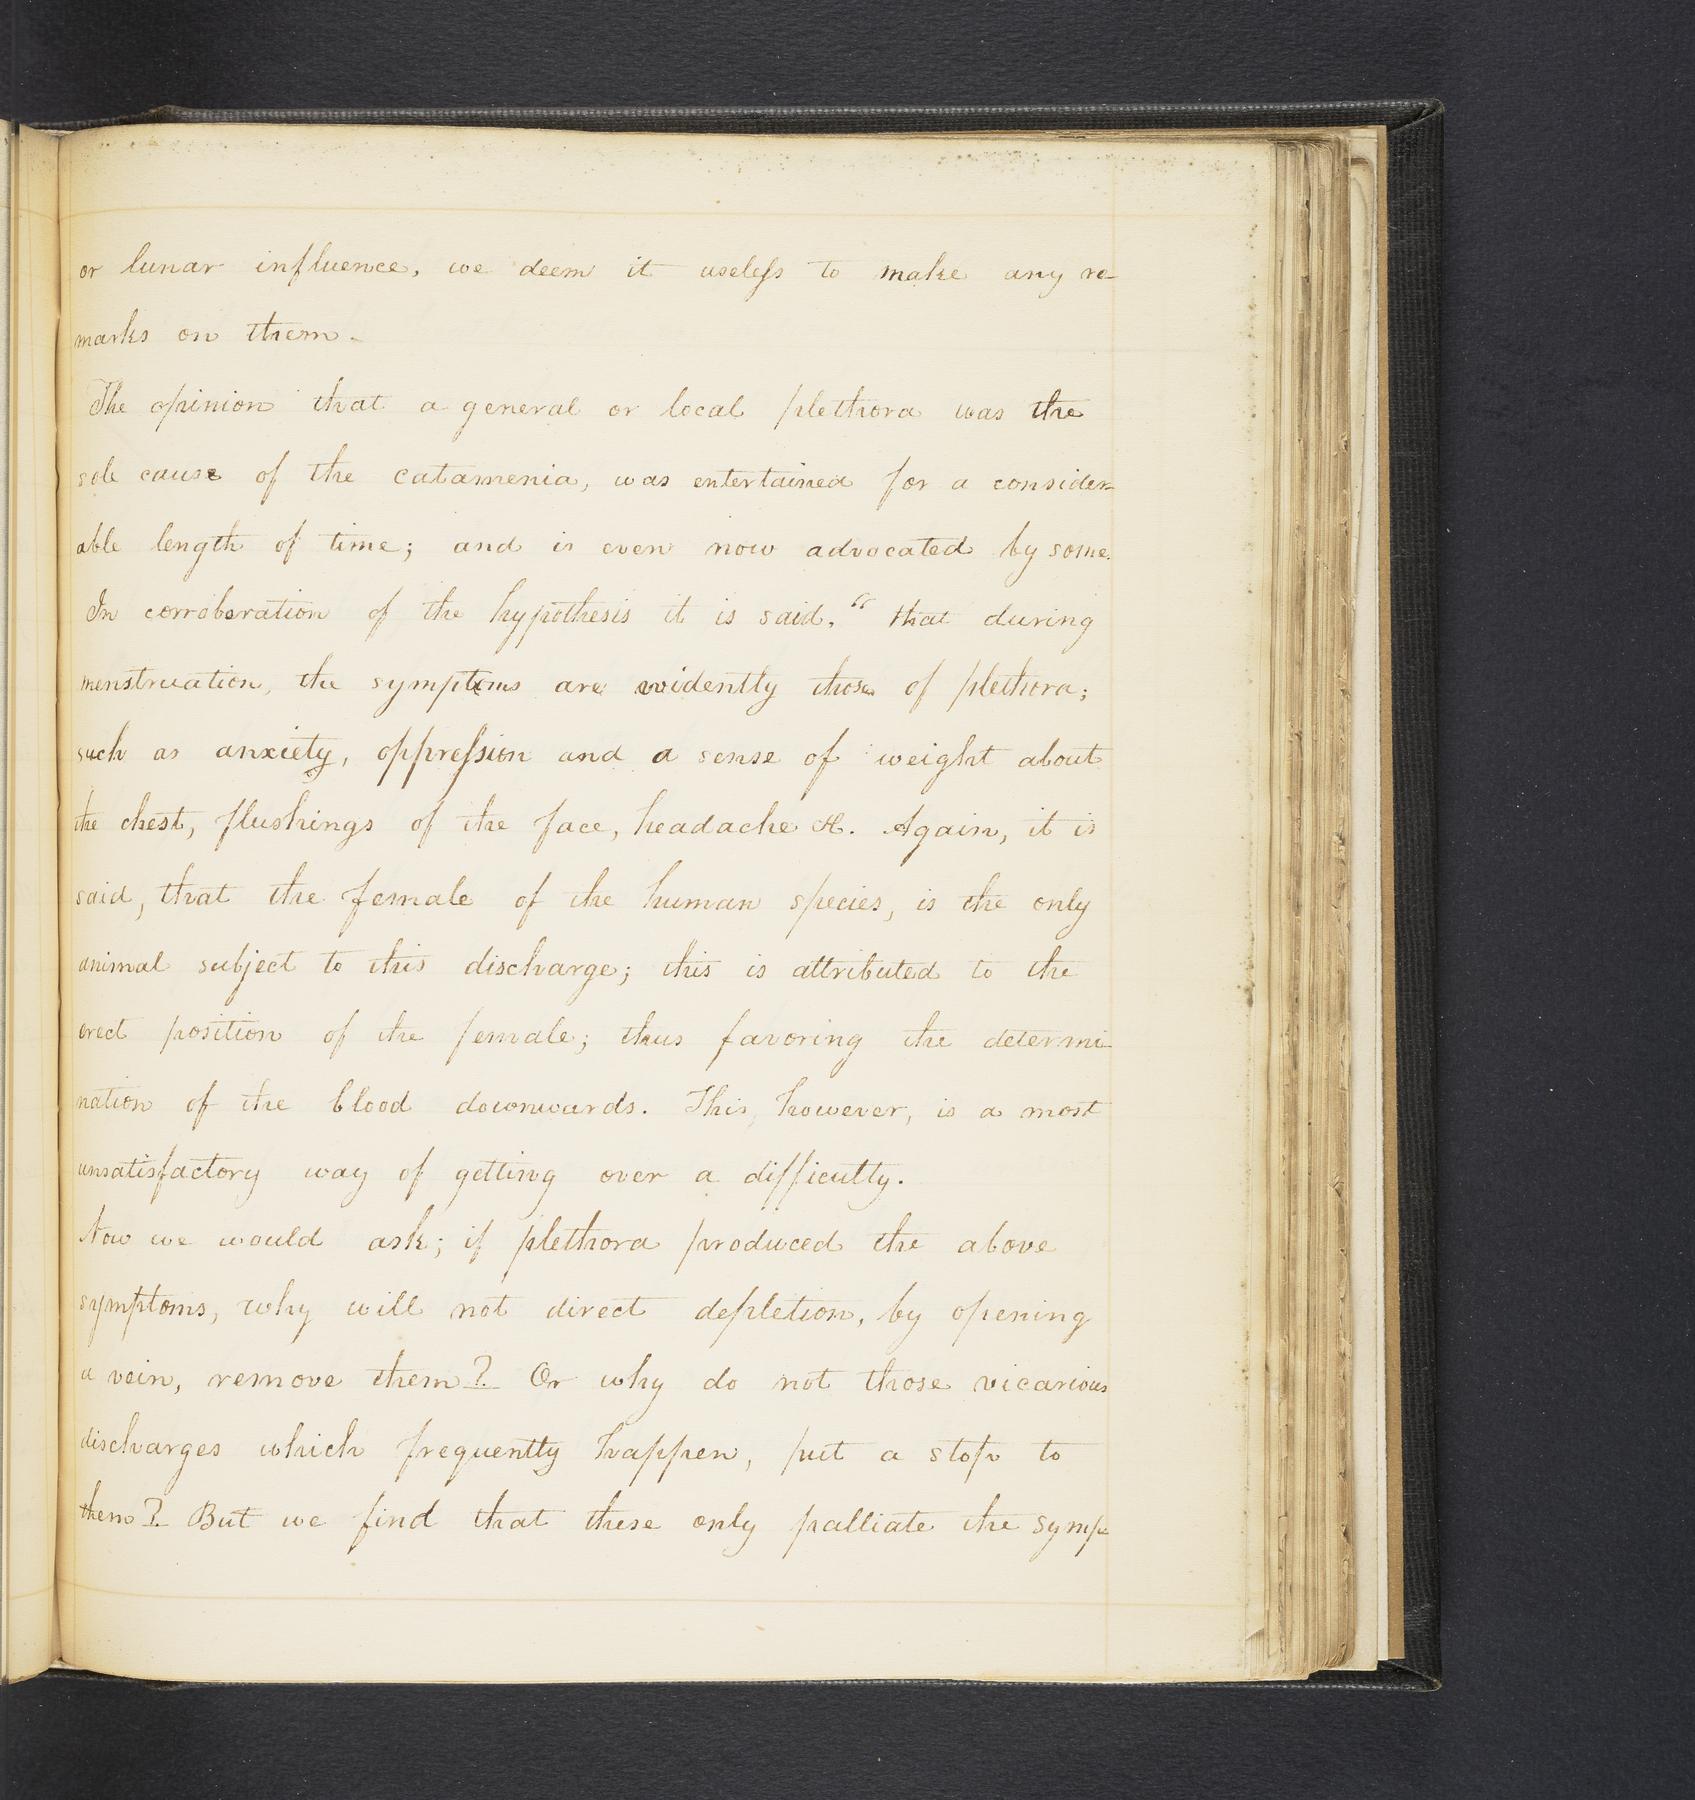 or lunar influence, we deem it useless to make any re-
marks on them.
The opinion that a general or local plethora was the
sole cause of the catamenia, was entertained for a consider-
able length of time; and is even now advocated by some.
In corroberation of the hypothesis it is said, "that during
menstruation, the symptoms are evidently those of plethora;
such as anxiety, oppression and a sense of weight about
the chest, flushings of the face, headache &c. Again, it is
said, that the female of the human species, is the only
animal subject to this discharge; this is attributed to the
erect position of the female; thus favoring the determi-
nation of the blood downwards. This, however, is a most
unsatisfactory way of getting over a difficulty.
Now we would ask; if plethora produced the above
symptoms, why will not direct depletion, by opening
a vein, remove them? Or why do not those vicarious
discharges which frequently happen, put a stop to
them? But we find that these only palliate the symp-